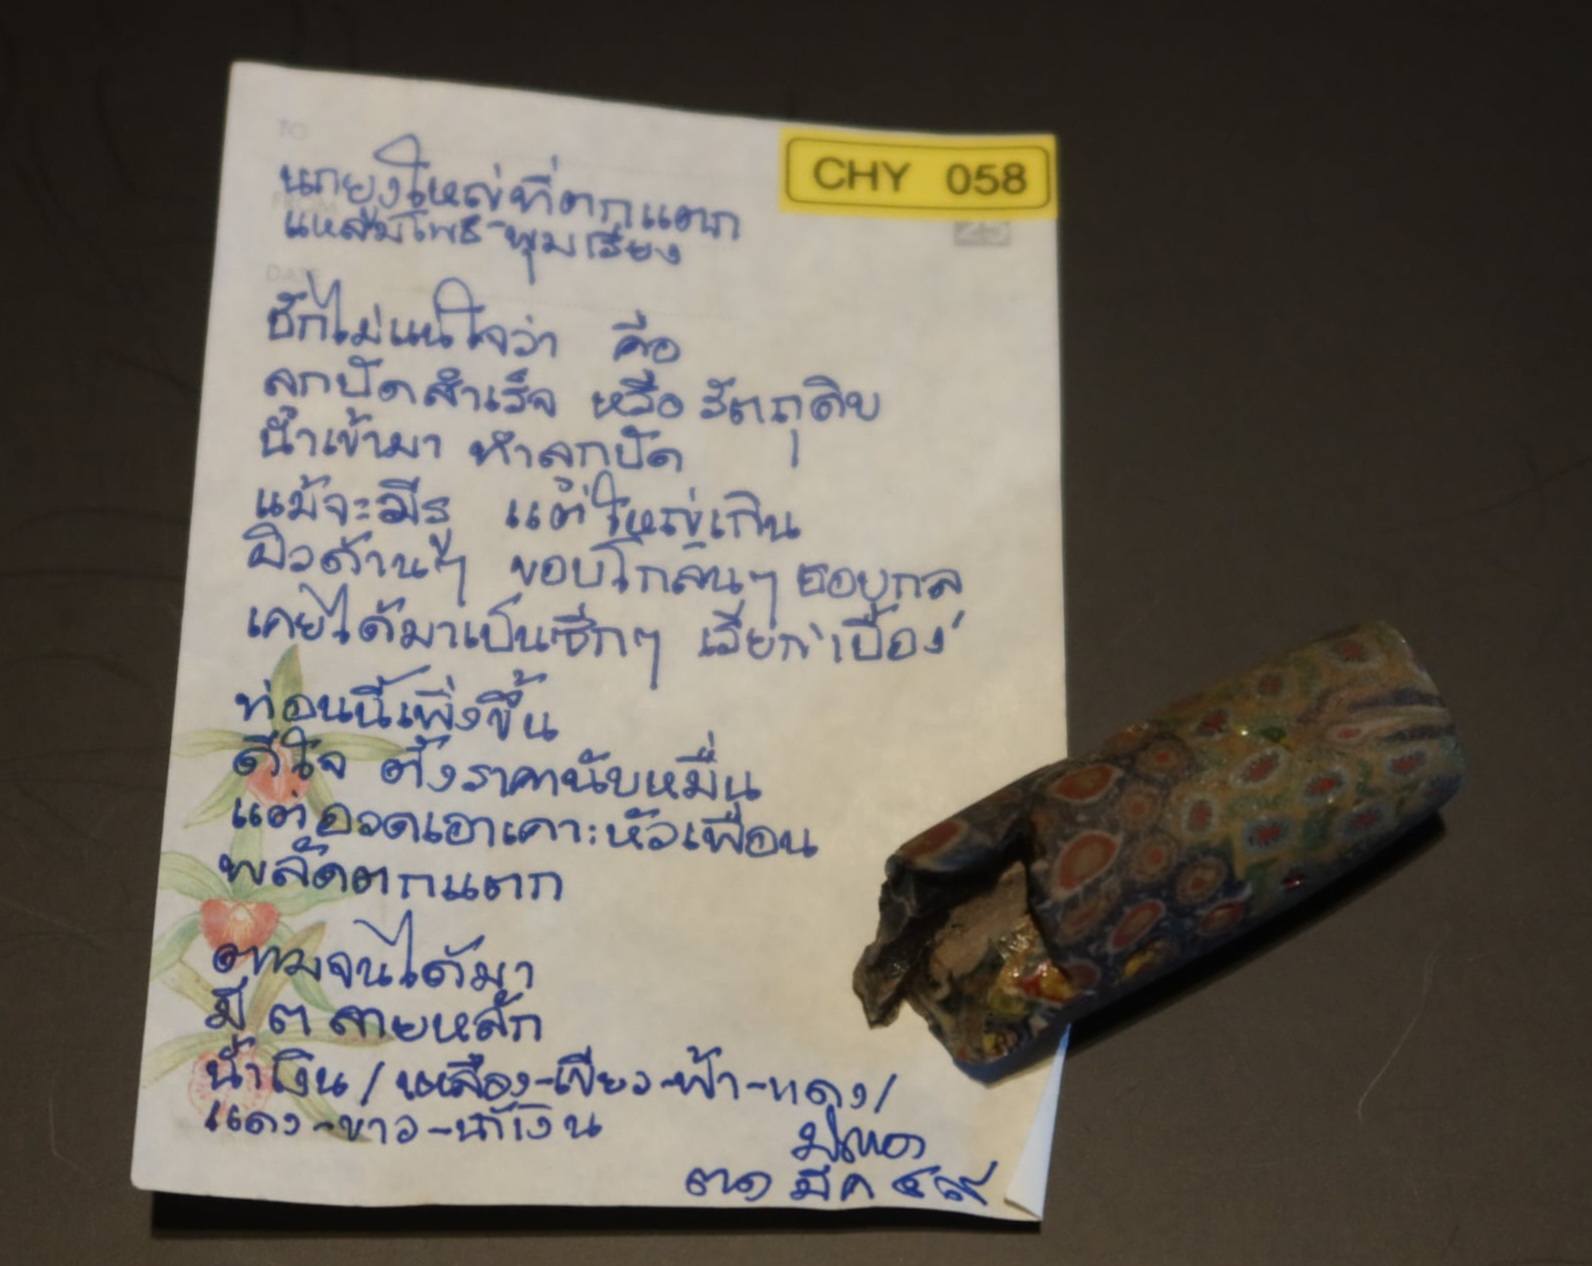 CHY 058
TO
FROM
DATE
นกยูงใหญ่ที่ตกแตก
แหลมโพธิ์-พุมเรียง
ชักไม่แน่ใจว่า คือ
ลูกปัดสำเร็จ หรือ วัตถุดิบ
นำเข้ามา ทำลูกปัด
แม้จะมีรู แต่ใหญ่เกิน
ผิวด้านๆ ขอบโกลนๆ ชอบกล
เคยได้มาเป็นซีกๆ เรียก 'เบื้อง'
ท่อนนี้เพิ่งขึ้น
ดีใจ ตั้งราคานับหมื่น
แต่อวดเอาเคาะหัวเพื่อน
พลัดตกแตก
ตามจนได้มา
มี ๓ ลายหลัก
น้ำเงิน/เหลือง-เขียว-ฟ้า-แดง/
แดง-ขาว-น้ำเงิน
๓๑ มีค ๔๙